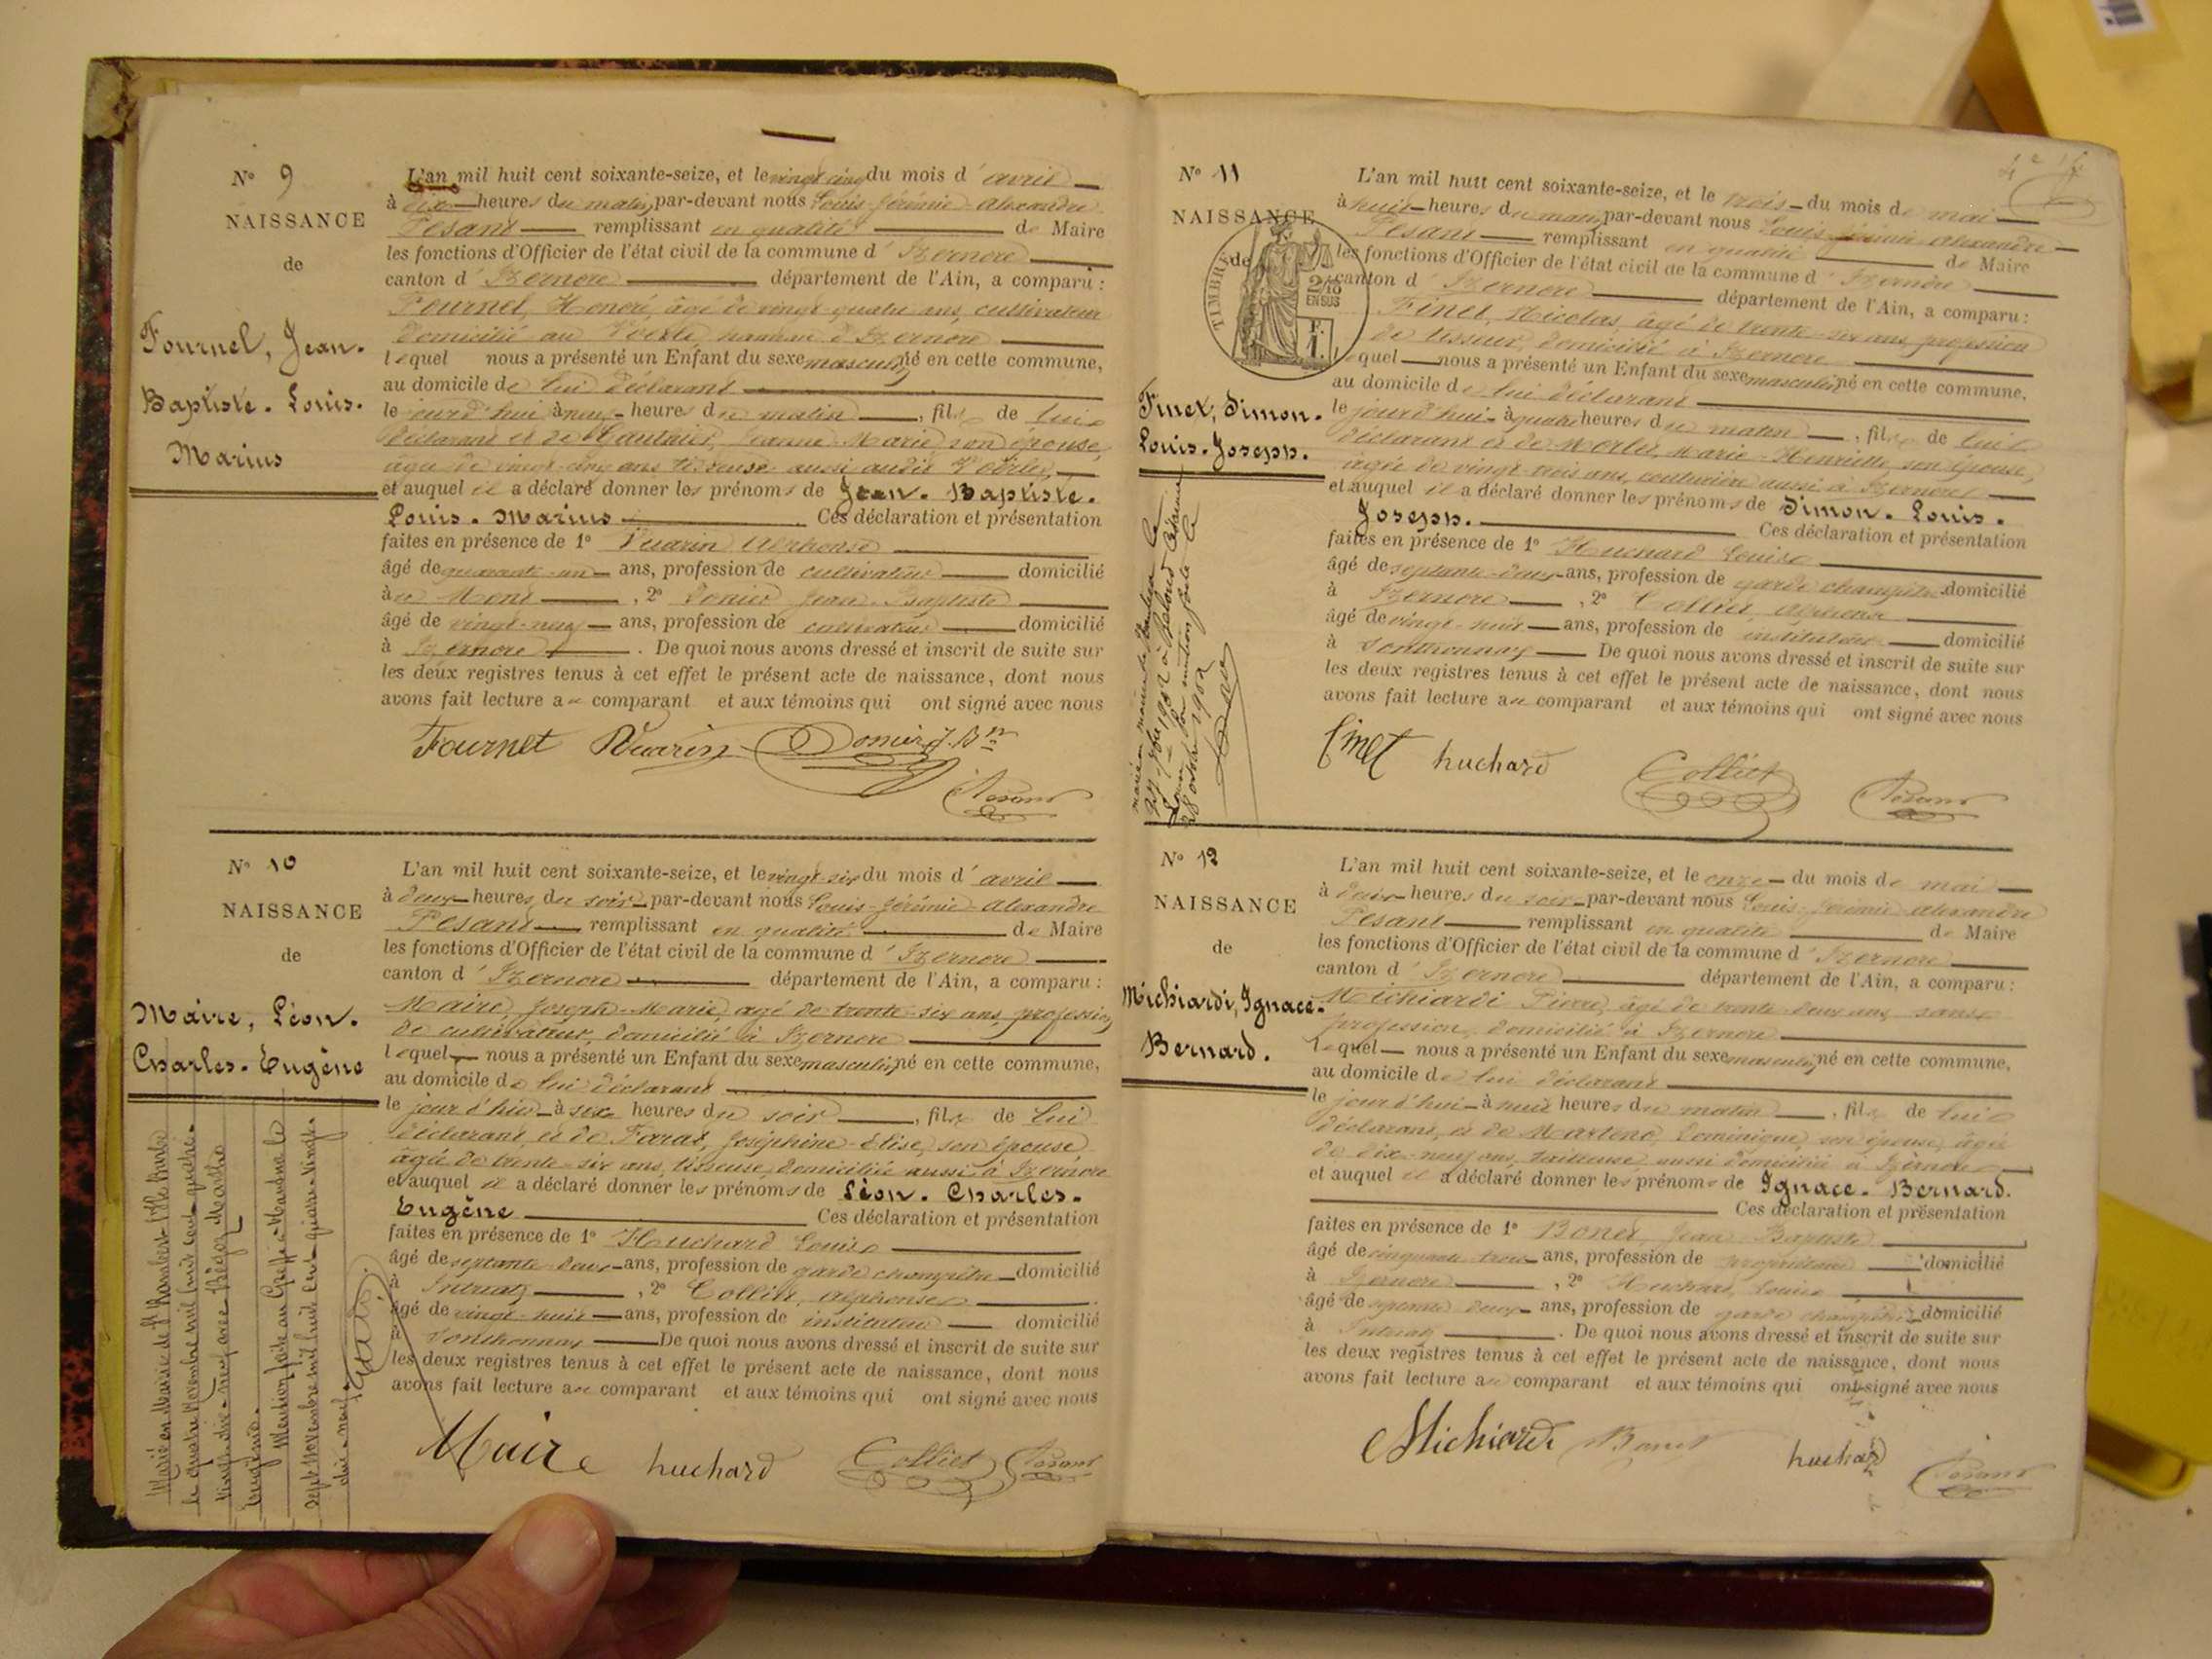 N° 9
NAISSANCE
de
Fournel, Jean.
Baptiste. Louis.
Marius
L'an mil huit cent soixante-seize, et le vingt cinq du mois d'avril
à dix heures du matin, par-devant nous Louis-Jérémie-Alexandre
Pesant remplissant en qualité de Maire
les fonctions d'Officier de l'état civil de la commune d'Izernore
canton d'Izernore département de l'Ain, a comparu :
Fournel, Honoré, âgé de vingt quatre ans, cultivateur
domicilié au Voerle, hameau d'Izernore
lequel nous a présenté un Enfant du sexe masculin, né en cette commune,
au domicile de lui déclarant
le jourd'hui à neuf heures du matin, fils de lui
déclarant et de Gauthier, Jeanne-Marie, son épouse,
âgée de vingt-cinq ans, tisseuse aussi audit Voerle,
et auquel il a déclaré donner les prénoms de Jean. Baptiste.
Louis. Marius Ces déclaration et présentation
faites en présence de 1° Vuarin Alphonse
âgé de quarante-un ans, profession de cultivateur domicilié
à , 2° Donier Jean-Baptiste
âgé de vingt-neuf ans, profession de cultivateur domicilié
à Izernore. De quoi nous avons dressé et inscrit de suite sur
les deux registres tenus à cet effet le présent acte de naissance, dont nous
avons fait lecture au comparant et aux témoins qui ont signé avec nous
Fournel Vuarin Donier J. Bte
Pesant
N° 10
NAISSANCE
de
Maire, Léon.
Charles. Eugène
L'an mil huit cent soixante-seize, et le vingt-six du mois d'avril
à deux heures du soir par-devant nous Louis-Jérémie-Alexandre
Pesant remplissant en qualité de Maire
les fonctions d'Officier de l'état civil de la commune d'Izernore
canton d'Izernore département de l'Ain, a comparu :
Maire, Joseph-Marie, âgé de trente-six ans, profession
de cultivateur, domicilié à Izernore
lequel nous a présenté un Enfant du sexe masculin, né en cette commune,
au domicile de lui déclarant
le jour d'hier à six heures du soir, fils de lui
déclarant, et de Joséphine-Elise, son épouse,
âgée de trente-six ans, tisseuse, domiciliée aussi à Izernore
et auquel il a déclaré donner les prénoms de Léon. Charles.
Eugène Ces déclaration et présentation
faites en présence de 1° Huchard Louis
âgé de septante-deux ans, profession de garde champêtre domicilié
à Intriat, 2° Colliet, Alphonse
âgé de vingt-huit ans, profession de instituteur domicilié
à Sonthonnax De quoi nous avons dressé et inscrit de suite sur
les deux registres tenus à cet effet le présent acte de naissance, dont nous
avons fait lecture au comparant et aux témoins qui ont signé avec nous
Maire huchard Colliet Pesant
Marié en Mairie de St Rambert
le quatre Novembre mil huit cent quatre-
vingt-dix-neuf avec Marthe
Eugénie.
Mention faite au Greffe Nantua le
sept Novembre mil huit cent quatre-vingt-
dix-neuf.
N° 11
NAISSANCE
de
TIMBRE
2/10
EN SUS
F.
1.
Finet, Simon.
Louis. Joseph.
L'an mil huit cent soixante-seize, et le trois du mois de mai
à huit heures du matin, par-devant nous Louis-Jérémie-Alexandre
Pesant remplissant en qualité de Maire
les fonctions d'Officier de l'état civil de la commune d'Izernore
canton d'Izernore département de l'Ain, a comparu :
Finet, Nicolas, âgé de trente-six ans, profession
de tisseur, domicilié à Izernore
lequel nous a présenté un Enfant du sexe masculin, né en cette commune,
au domicile de lui déclarant
le jourd'hui à quatre heures du matin, fils de lui
déclarant et de Marie-Henriette, son épouse,
âgée de vingt-trois ans, couturière aussi à Izernore
et auquel il a déclaré donner les prénoms de Simon. Louis.
Joseph. Ces déclaration et présentation
faites en présence de 1° Huchard Louis
âgé de septante-deux ans, profession de garde champêtre domicilié
à Izernore, 2° Colliet, Alphonse
âgé de vingt-huit ans, profession de instituteur domicilié
à Sonthonnax De quoi nous avons dressé et inscrit de suite sur
les deux registres tenus à cet effet le présent acte de naissance, dont nous
avons fait lecture au comparant et aux témoins qui ont signé avec nous
Finet huchard Colliet Pesant
N° 12
NAISSANCE
de
Michiardi, Ignace.
Bernard.
L'an mil huit cent soixante-seize, et le onze du mois de mai
à deux heures du soir par-devant nous Louis-Jérémie-Alexandre
Pesant remplissant en qualité de Maire
les fonctions d'Officier de l'état civil de la commune d'Izernore
canton d'Izernore département de l'Ain, a comparu :
Michiardi Pierre, âgé de trente-deux ans, sans
profession, domicilié à Izernore
lequel nous a présenté un Enfant du sexe masculin, né en cette commune,
au domicile de lui déclarant
le jourd'hui à huit heures du matin, fils de lui
déclarant, et de Dominique, son épouse, âgée
de dix-neuf ans, tailleuse, aussi domiciliée à Izernore
et auquel il a déclaré donner les prénoms de Ignace. Bernard.
Ces déclaration et présentation
faites en présence de 1° Bonet, Jean-Baptiste
âgé de cinquante-trois ans, profession de propriétaire domicilié
à Izernore, 2° Huchard, Louis
âgé de septante-deux ans, profession de garde champêtre domicilié
à Intriat. De quoi nous avons dressé et inscrit de suite sur
les deux registres tenus à cet effet le présent acte de naissance, dont nous
avons fait lecture au comparant et aux témoins qui ont signé avec nous
Michiardi Bonet huchard Pesant